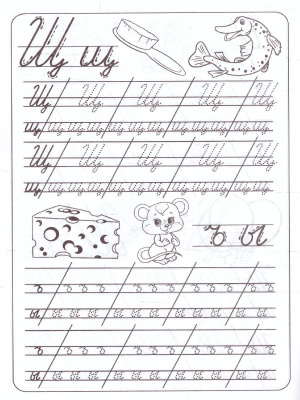 Щ щ
Щ Щ Щ Щ Щ
щ щ щ щ щ щ щ щ щ щ щ щ щ
Щ Щ Щ Щ Щ
щ щ щ щ щ щ щ щ щ щ щ щ щ
ъ ы
ъ ъ ъ ъ ъ ъ ъ ъ ъ ъ ъ ъ
ы ы ы ы ы ы ы ы ы ы ы ы
ъ ъ ъ ъ ъ ъ ъ ъ ъ ъ ъ ъ
ы ы ы ы ы ы ы ы ы ы ы ы